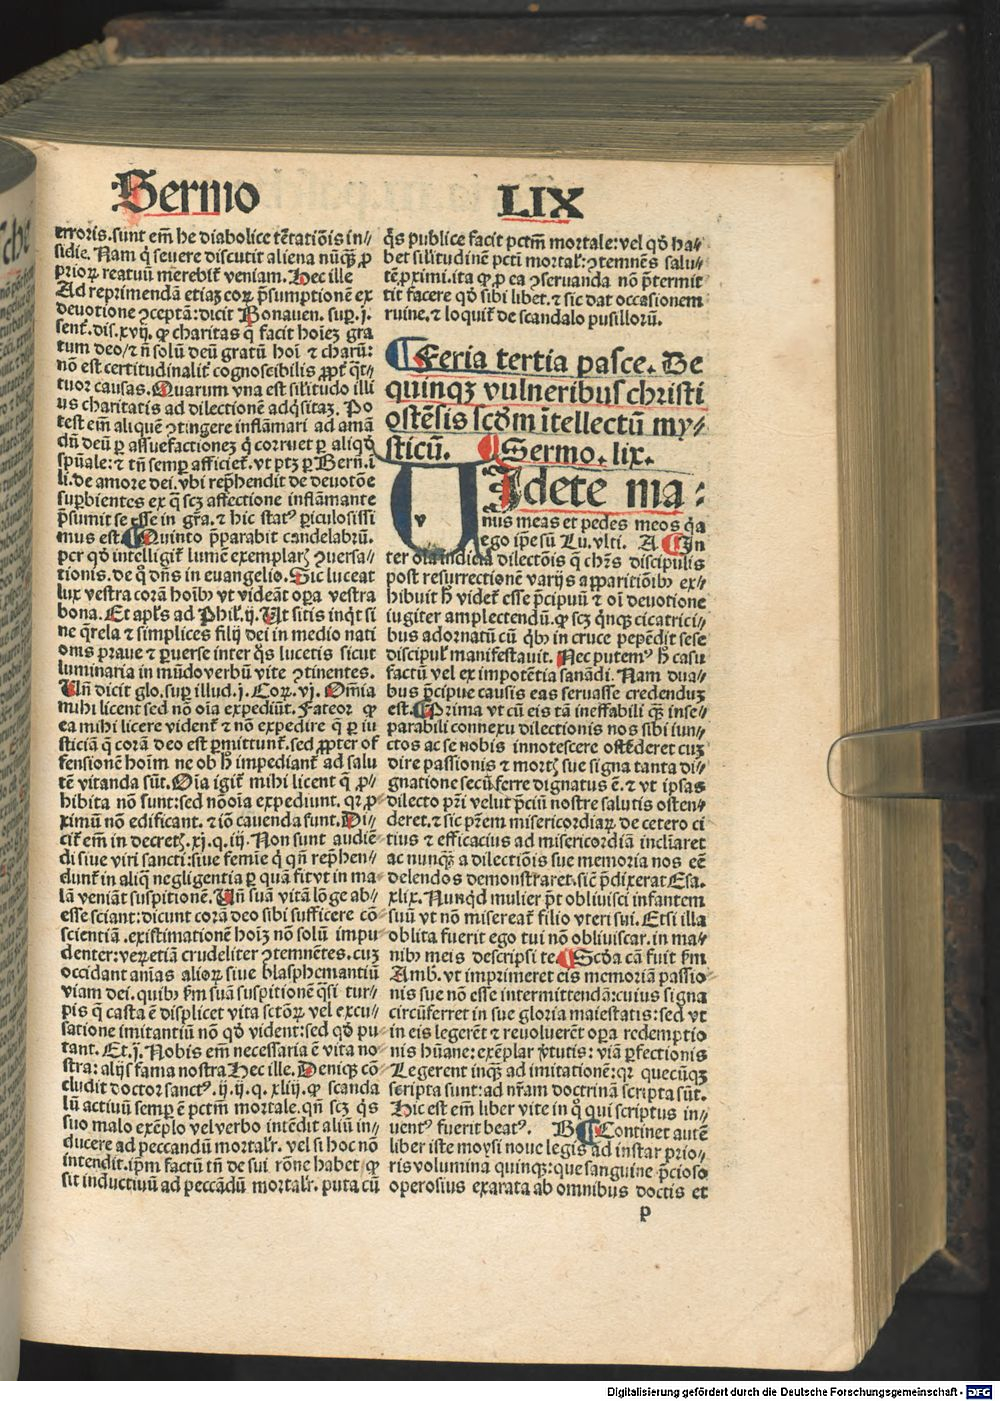 Sermo LIX
erroris.sunt em̄ he diabolice tẽtatiõis in//
sidie. Nam q̇ seuere discutit aliena nūq̃ʒ ꝓ
priorꝝ reatuū merebiť veniam. Hec ille
Ad reprimendā etiaʒ eorꝝ p̃sumptionē ex
deuotione ꝯceptā: dicit Bonauen. suꝑ. j.
senť. dis. xvij. ꝙ charitas q̄ facit hoīeʒ gra
tum deo/ ⁊ ñ solū deū gratū hoī ⁊ charū:
nō est certitudinaliť cognoscibilis ꝓpť q̄t//
tuor causas. Quarum vna est silitudo illi
us charitatis ad dilectionē adq̇sitaʒ. Po
test em̄ aliquē ꝯtingere inflāmari ad amā
dū deū ꝑ assuefactioneʒ q̇ corruet ꝑ aliqḋ
spūale: ⁊ tñ semꝑ afficieť. vt ptʒ ꝑ Berñ. ī
li. de amore dei. vbi rep̄hendit de deuotōe
suꝑbientes ex q̄ scʒ affectione inflāmante
p̄sumit se esse in gr̄a. ⁊ hic statꝰ ꝑiculosissi
mus est. Quinto p̄parabit candelabrū.
per qḋ intelligiť lumē exemplarꝭ ꝯuersa//
tionis. de q̊ dn̄s in euangelio. Sic luceat
lux vestra corā hoībꝰ vt videāt oꝑa vestra
bona. Et apl̄s ad Phil. ij. Vt sitis inq̇t si
ne q̄rela ⁊ simplices filij dei in medio nati
onis praue ⁊ ꝑuerse inter q̊s lucetis sicut
luminaria in mūdo verbū vite ꝯtinentes.
Vñ dicit glo. suꝑ illud. j. Corꝝ. vj. Om̄ia
mihi licent sed nō oīa expediūt. Fateor ꝙ
ea mihi licere videnť ⁊ nō expedire q̄ ꝑ iu
sticiā q̄ corā deo est ꝑmittunť. sed ꝓpter of
fensionē hoīm ne ob h̄ impedianť ad salu
tē vitanda sūt. Oīa igiť mihi licent q̄ ꝓ/
hibita nō sunt: sed nō oīa expediunt. qꝛ ꝓ
ximū nō edificant. ⁊ iō cauenda sunt. Di//
ciť em̄ in decretꝭ. xj. q. iij. Non sunt audiē
di siue viri sancti: siue femie q̇ qn̄ rep̄hen//
dunť in aliq̄ negligentia ꝑ quā fit vt in ma
lā veniāt suspitionē. Vñ suā vitā lōge ab//
esse sciant: dicunt corā deo sibi sufficere cō
scientiā. existimationē hoīʒ nō solū impu
denter: veꝝ etiā crudeliter ꝯtemnētes. cuʒ
occidant aīas aliorꝝ siue blasphemantiū
viam dei. quibꝰ fm̄ suā suspitionē q̄si tur//
pis q̄ casta ē displicet vita sctōrꝝ vel excu//
satione imitantiū nō qḋ vident: sed qḋ pu
tant. Et. j. Nobis em̄ necessaria ē vita no//
stra: alijs fama nostra Hec ille. Deniqʒ cō
cludit doctor sanctꝰ. ij. ij. q. xliij. ꝙ scanda
lū actiuū semꝑ ē pctm̄ mortale. qn̄ scʒ q̇s
suo malo exēplo vel verbo intēdit aliū in//
ducere ad peccandū mortalr̄. vel si hoc nō
intendit. ip̄m factū tñ de sui rōne habet/ ꝙ
sit inductiuū ad peccādū mortalr̄. puta cū
q̇s publice facit pctm̄ mortale: vel qḋ ha//
bet silitudinē pctī mortal̄: ꝯtemnēs salu//
tē ꝓximi. ita ꝙ ꝓ ea ꝯseruanda nō p̄termit
tit facere qḋ sibi libet. ⁊ sic dat occasionem
ruine. ⁊ loquiť de scandalo pusillorū.
Feria tertia pasce. De
quinqʒ vulneribus christi
ostēsis scḋm ītellectū my//
sticū. Sermo. lix.
VIdete ma:
nus meas et pedes meos q̇a
ego ip̄e sū Lu. vlti. A In
ter oīa indicia dilectōis q̄ chr̄s discipulis
post resurrectionē varijs apparitiōibꝰ ex//
hibuit h̄ videť esse p̄cipuū ⁊ oī deuotione
iugiter amplectendū. ꝙ scʒ q̇nqʒ cicatrici//
bus adornatū cū q̇bꝰ in cruce pepēdit sese
discipul̄ manifestauit. Nec putemꝰ h̄ casu
factū vel ex impotētia sanādi. Nam dua//
bus p̄cipue causis eas seruasse credenduʒ
est. Prima vt cū eis tā ineffabili q̄ʒ inse//
parabili connexu dilectionis nos sibi iun//
ctos ac se nobis innotescere ostēderet cuʒ
dire passionis ⁊ mortꝭ sue signa tanta di//
gnatione secū ferre dignatus ē. ⁊ vt ipsas
dilecto pr̄i velut p̄ciū nostre salutis osten//
deret. ⁊ sic pr̄em misericordiarꝝ de cetero ci
tius ⁊ efficacius ad misericordiā inclīaret
ac nunq̄ʒ a dilectiōis sue memoria nos eē
delendos demonstraret. sic p̄dixerat Esa.
xlix. Nunqd mulier p̄t obliuisci infantem
suū vt nō misereať filio vteri sui. Etsi illa
oblita fuerit ego tui nō obliuiscar. in ma//
nibꝰ meis descripsi te. Scḋa cā fuit fm̄
Amb. vt imprimeret eis memoriā passio//
nis sue nō esse intermittendā: cuius signa
circūferret in sue gloria maiestatis: sed vt
in eis legerēt ⁊ reuoluerēt oꝑa redemptio
nis hūane: exēplar v̄tutis: viā ꝑfectionis
Legerent inqʒ ad imitationē: qꝛ quecūqʒ
scripta sunt: ad nr̄am doctrinā scripta sūt.
Hic est em̄ liber vite in q̊ qui scriptus in//
uentꝰ fuerit beatꝰ. B Continet autē
liber iste moysi noue legis ad instar prio//
ris volumina quinqʒ: que sanguine p̄cioso
operosius exarata ab omnibus doctis et
p
Digitalisierung gefördert durch die Deutsche Forschungsgemeinschaft - DFG